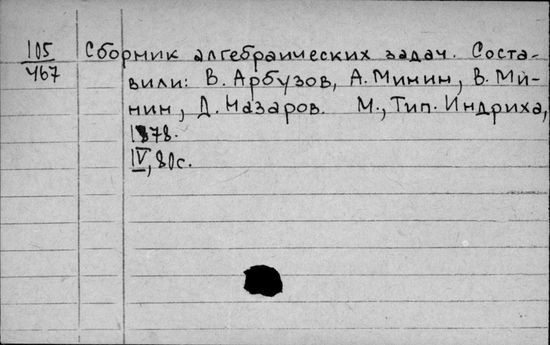 105 Сборник алгебраических задач. Соста-
467 вили: В. Арбузов, А. Минин, В. Ми-
нин, Д. Назаров. М., Тип. Индриха,
1878.
IV, 80с.